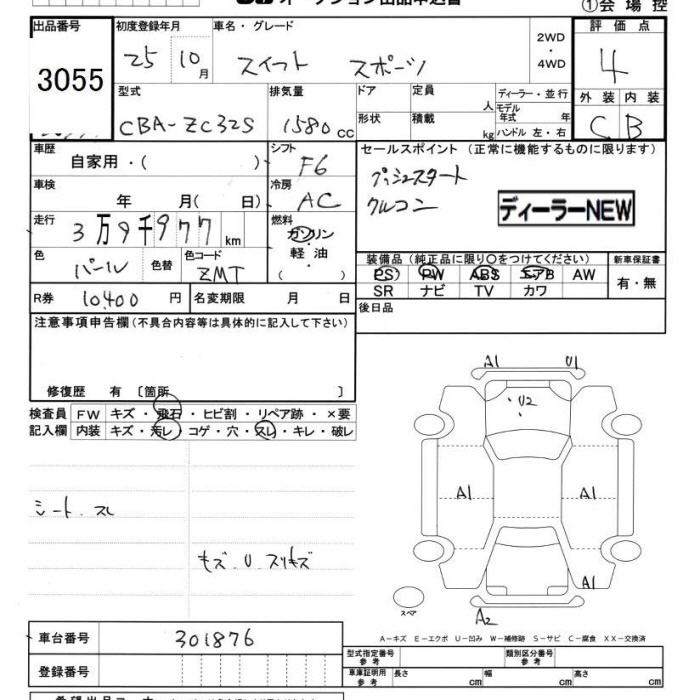 オークション出品申込書
①会場控
出品番号 初度登録年月 車名・グレード 評価点
3055 25 10月 スイフト スポーツ 2WD・4WD 4
型式 排気量 ドア 定員 人 ディーラー・並行 外装 内装
CBA-ZC32S 1580cc 形状 積載 kg モデル年式 年 ハンドル 左・右 C B
車歴 自家用・( ) シフト F6 セールスポイント (正常に機能するものに限ります)
車検 年 月( 日) 冷房 AC プッシュスタート
クルコン ディーラーNEW
走行 3万9千977km 燃料 ガソリン
軽油
( )
色 パール 色替 色コード ZMT 装備品(純正品に限り○をつけてください) 新車保証書
PS PW ABS エアB AW 有・無
SR ナビ TV カワ
R券 10400円 名変期限 月 日
後日品
注意事項申告欄(不具合内容等は具体的に記入して下さい)
修復歴 有 〔箇所 〕
検査員 FW キズ・飛石・ヒビ割・リペア跡・×要
記入欄 内装 キズ・汚レ・コゲ・穴・スレ・キレ・破レ
シート スレ
キズ U スリキズ
A1 U1
U2
A1 A1
A1
スペア A2
A-キズ E-エクボ U-凹み W-補修跡 S-サビ C-腐食 XX-交換済
車台番号 301876
登録番号
型式指定番号 参考 類別区分番号 参考
車庫証明用 参考 長さ cm 幅 cm 高さ cm